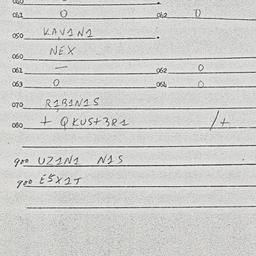 041 0 042 0
050 KAV1N1
NEX
060
061 — 062 0
063 0 064 0
070 R1B1N1S
080 + QKUS+3R1 /+
900 UZ1N1 N1S
900 E5X1T